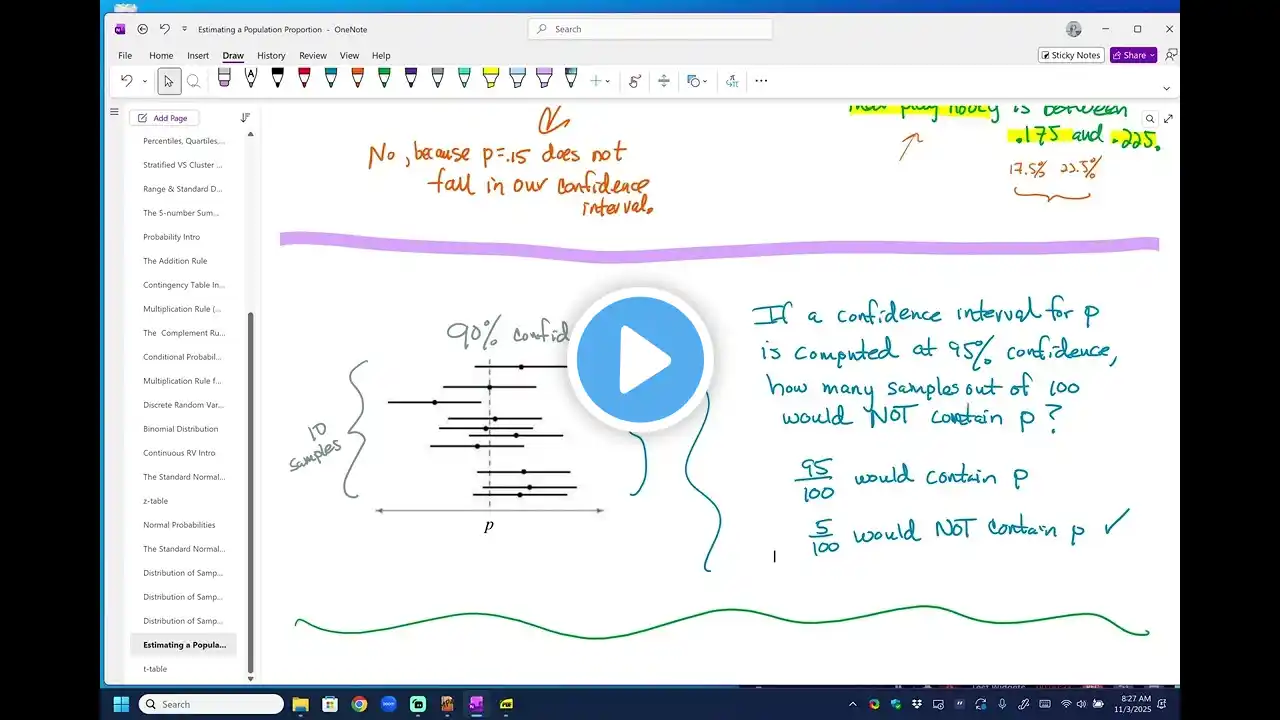 Estimating a Population Proportion - OneNote
Search
File Home Insert Draw History Review View Help
Sticky Notes
Share
Add Page
Percentiles, Quartiles,...
Stratified VS Cluster ...
Range & Standard D...
The 5-number Sum...
Probability Intro
The Addition Rule
Contingency Table In...
Multiplication Rule (...
The Complement Ru...
Conditional Probabil...
Multiplication Rule f...
Discrete Random Var...
Binomial Distribution
Continuous RV Intro
The Standard Normal...
z-table
Normal Probabilities
The Standard Normal...
Distribution of Samp...
Distribution of Samp...
Distribution of Samp...
Estimating a Popula...
t-table
No, because p=.15 does not
fall in our confidence
interval.
is between
.175 and .225.
17.5% 22.5%
90% confid
10
samples
p
If a confidence interval for p
is computed at 95% confidence,
how many samples out of 100
would NOT contain p?
95/100 would contain p
5/100 would NOT contain p ✓
Search
8:27 AM
11/3/2025